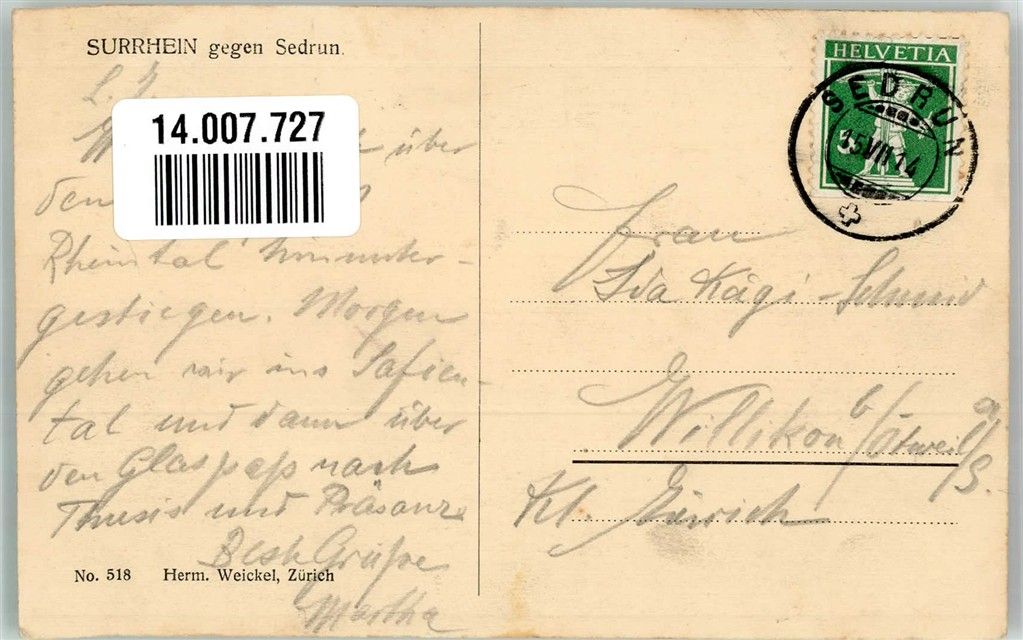 SURRHEIN gegen Sedrun.
L. I.
14.007.727
über
den
Rheintal hinunter-
gestiegen. Morgen
gehen wir ins Safien-
tal und dann über
den Glaspaß nach
Thusis und Präsanz
Beste Grüße
Martha
No. 518 Herm. Weickel, Zürich
HELVETIA
SEDRUN
15 VII 14
Frau
Ida Kägi-Schmid
Willikon b/Ötweil a/S.
Kt. Zürich